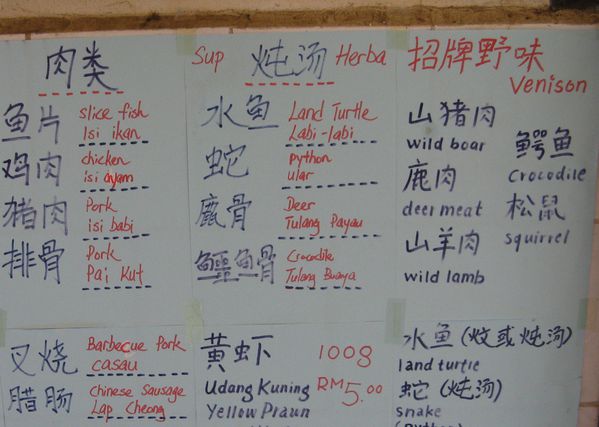 肉类
鱼片 slice fish
Isi ikan
鸡肉 chicken
isi ayam
猪肉 Pork
isi babi
排骨 Pork
Pai Kut
叉烧 Barbecue Pork
casau
腊肠 Chinese Sausage
Lap Cheong
Sup 炖汤 Herba
水鱼 Land Turtle
Labi-labi
蛇 python
ular
鹿骨 Deer
Tulang Payau
鳄鱼骨 Crocodile
Tulang Buaya
黄虾 100g
Udang Kuning RM5.00
Yellow Praun
招牌野味
Venison
山猪肉
wild boar
鹿肉
deer meat
山羊肉
wild lamb
鳄鱼
Crocodile
松鼠
squirrel
水鱼 (炆或炖汤)
land turtle
蛇 (炖汤)
snake